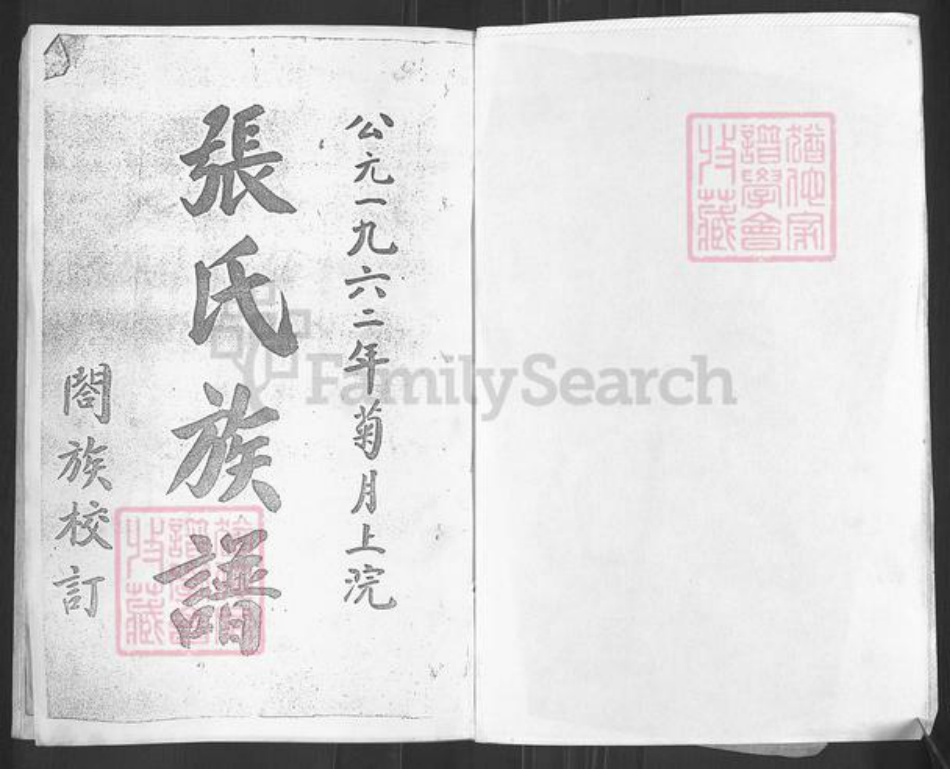 公元一九六二年菊月上浣
張氏族譜
閤族校訂
猶他家
譜學會
收藏
猶他家
譜學會
收藏
FamilySearch